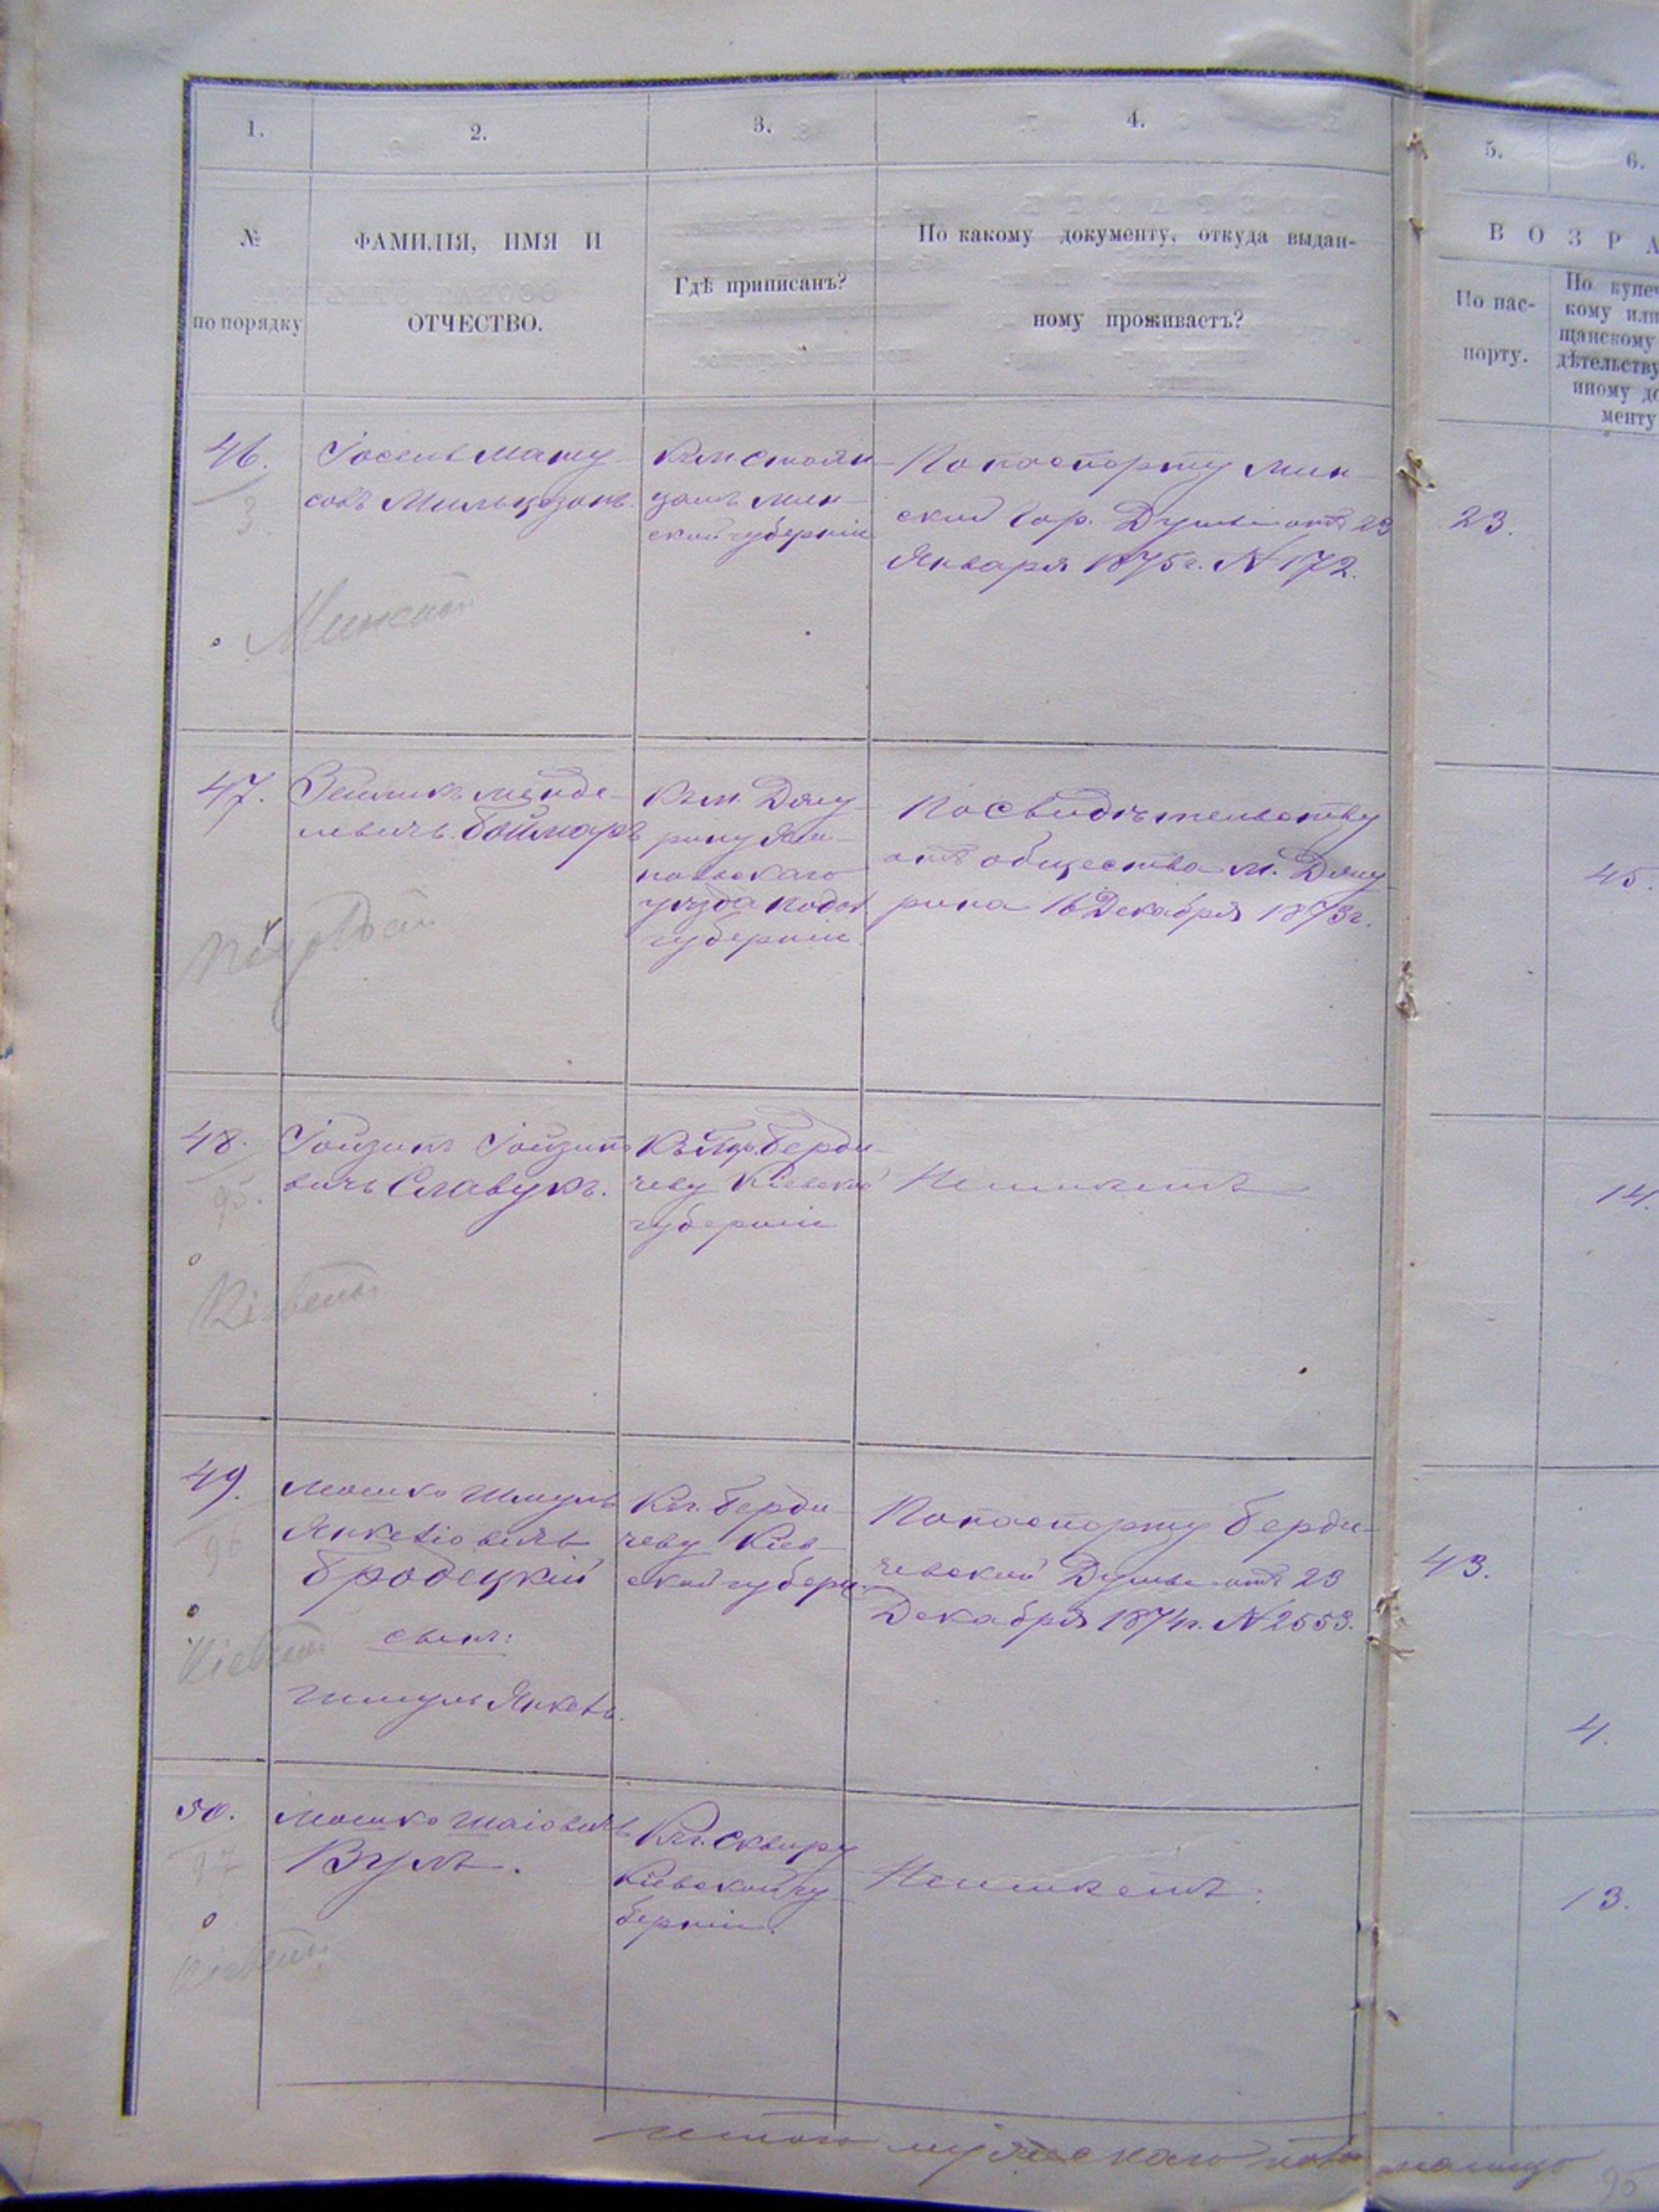 1.
2.
3.
4.
5.
6.
№
по порядку
ФАМИЛІЯ, ИМЯ И
ОТЧЕСТВО.
Гдѣ приписанъ?
По какому документу, откуда выдан-
ному проживаетъ?
ВОЗРА
По пас-
порту.
По купеч
кому или
щанскому
дѣтельству
иному до
менту
46.
3
Іосель Мату-
совъ Мильцзонъ.
скойгуберніи
По паспорту Мин-
ской Гор. Думы отъ 23
Января 1875г. N 172.
23.
Минской
47.
Зейликъ Менде-
левичъ Боймаръ
Къ м. Дзыгу-
ку Ям-
польскаго
уѣзда Подол
губерніи.
По свидѣтельству
отъ общества м. Дзыгу-
16 Декабря 1873г.
45.
48.
95.
Іойзипъ Іойзипо
вичъ Славукъ.
Берди-
чеву Кіевской
губерніи
Неимѣетъ
14.
Кіевской
49.
96
Мошко Шмуль
Янкеліовичъ
Бродецкій
сынъ:
Шмуль Янкель.
Къ г. Берди-
чеву Кіев-
ской губерн.
По паспорту Берди-
чевской Думы отъ 23
Декабря 1874г. N 2553.
43.
4.
Кіевской
50.
97
Мошко Шаіовичъ
Вулъ.
Къ г. Сквиру
Кіевской гу-
берніи.
Неимѣетъ.
13.
Кіевской
итого мужескаго пола
95